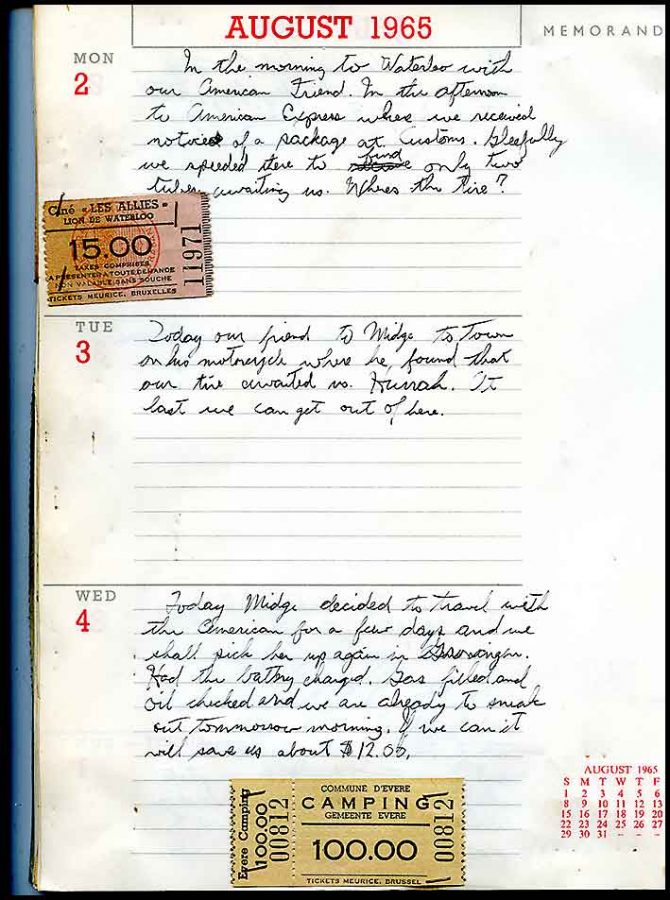 AUGUST 1965
MEMORAND
MON
2
In the morning to Waterloo with
our American Friend. In the afternoon
to American Express where we received
notice of a package at Customs. Gleefully
we speeded there to find only two
tubes awaiting us. Wheres the tire?
Ciné «LES ALLIES»
LION DE WATERLOO
15.00
TAXES COMPRISES
A PRESENTER A TOUTE DEMANDE
NON VALABLE SANS SOUCHE
TICKETS MEURICE, BRUXELLES
11971
TUE
3
Today our friend to Midge to Town
on his motorcycle where he found that
our tire awaited us. Hurrah. At
last we can get out of here.
WED
4
Today Midge decided to travel with
the American for a few days and we
shall pick her up again in
Had the battry charged. Gas filled and
oil checked and we are already to sneak
out tommorow morning. If we can it
will save us about $12.00.
Evere Camping
100.00
00812
COMMUNE D'EVERE
CAMPING
GEMEENTE EVERE
100.00
TICKETS MEURICE, BRUSSEL
00812
AUGUST 1965
S M T W T F
1 2 3 4 5 6
8 9 10 11 12 13
15 16 17 18 19 20
22 23 24 25 26 27
29 30 31 - - -